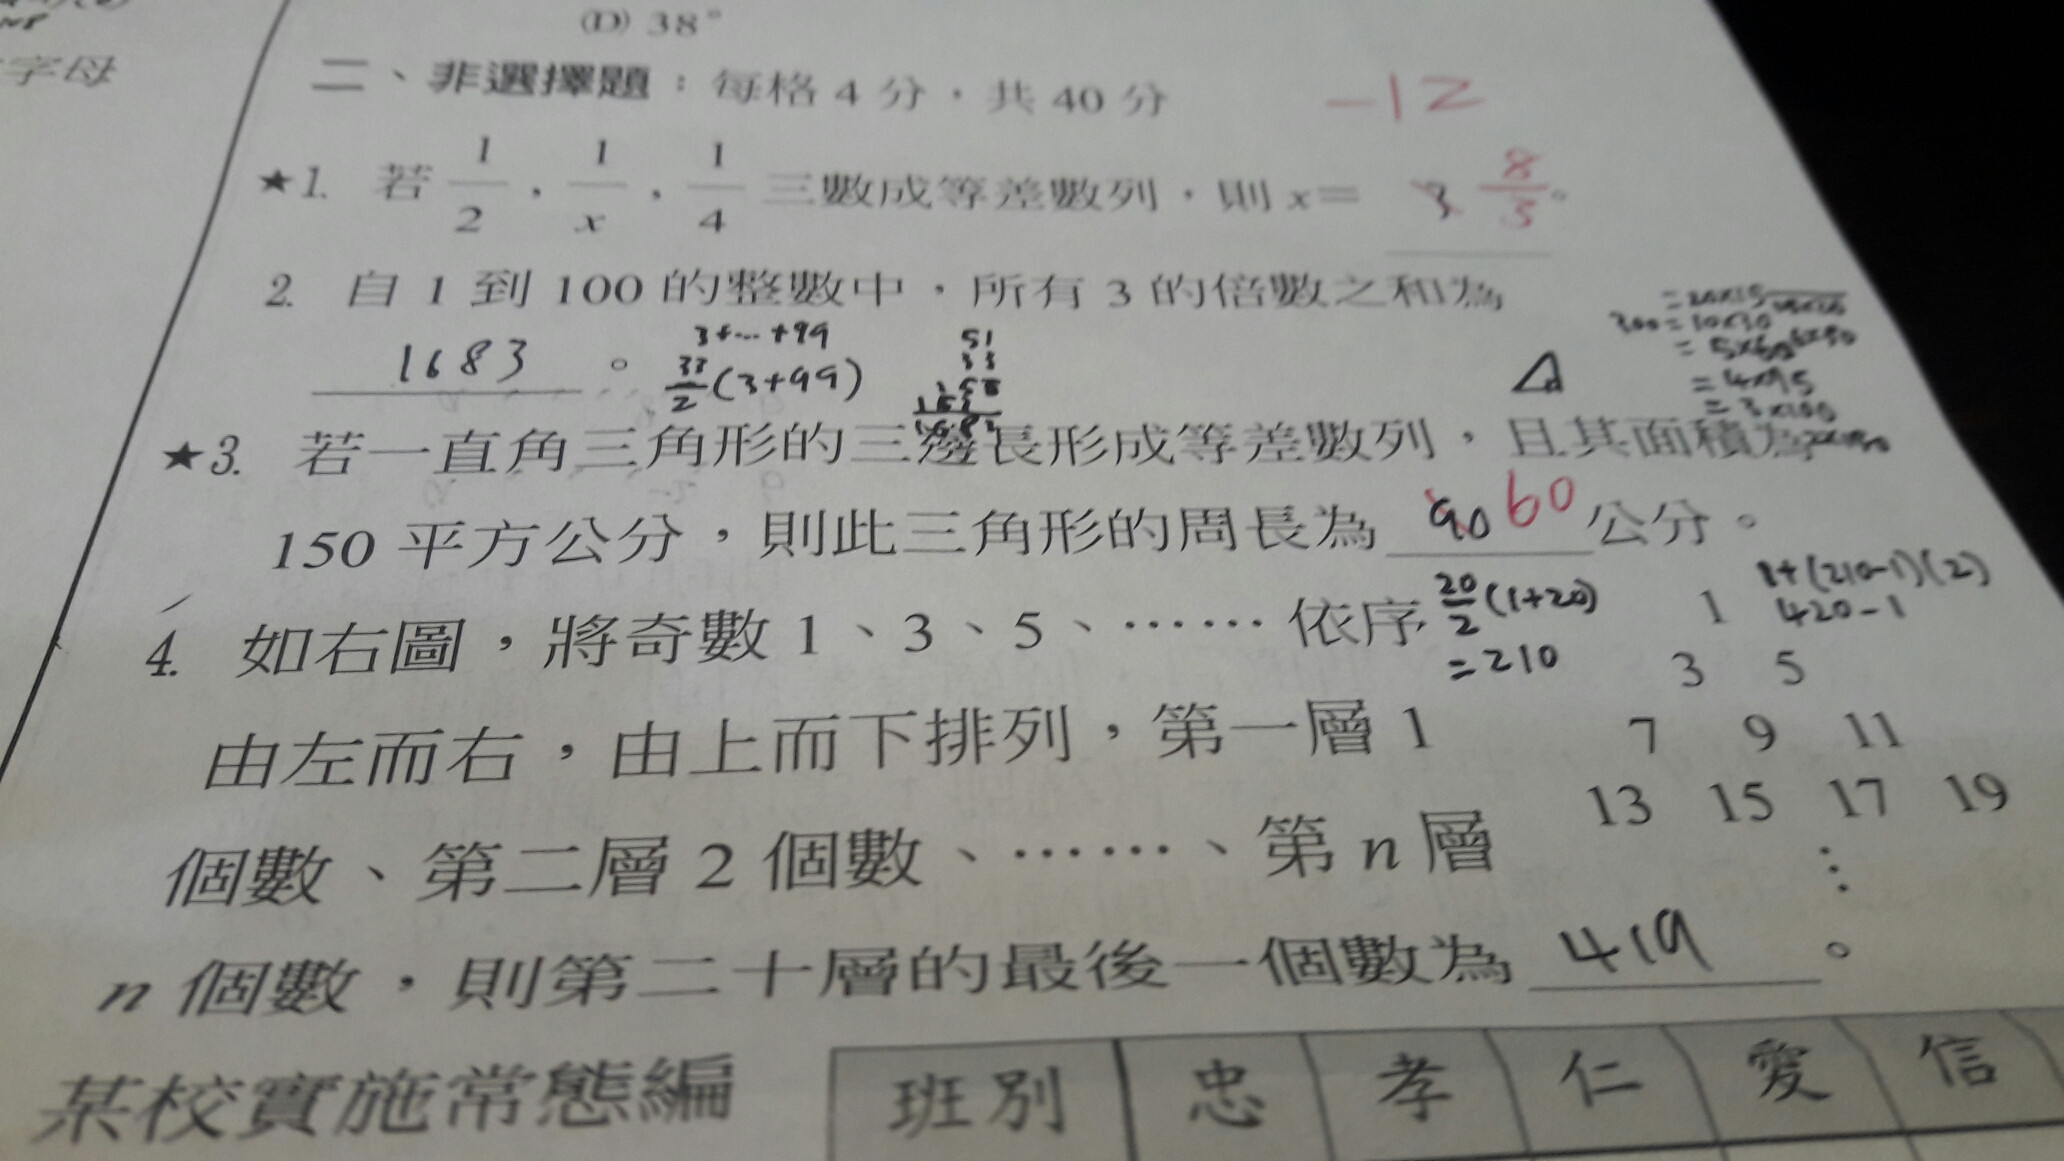 字母
(D) 38°
二、非選擇題：每格 4 分，共 40 分
-12
★1. 若 1/2，1/x，1/4 三數成等差數列，則 x＝ 3 8/3。
2. 自 1 到 100 的整數中，所有 3 的倍數之和為
1683。
3+…+99
33/2(3+99)
51
33
300=10×30
=4×75
=3×100
★3. 若一直角三角形的三邊長形成等差數列，且其面積為
150 平方公分，則此三角形的周長為 90 60 公分。
4. 如右圖，將奇數 1、3、5、…… 依序
20/2(1+20)
=210
1+(210-1)(2)
420-1
由左而右，由上而下排列，第一層 1
個數、第二層 2 個數、……、第 n 層
n 個數，則第二十層的最後一個數為 419。
1
3 5
7 9 11
13 15 17 19
⋮
某校實施常態編
班別 忠 孝 仁 愛 信